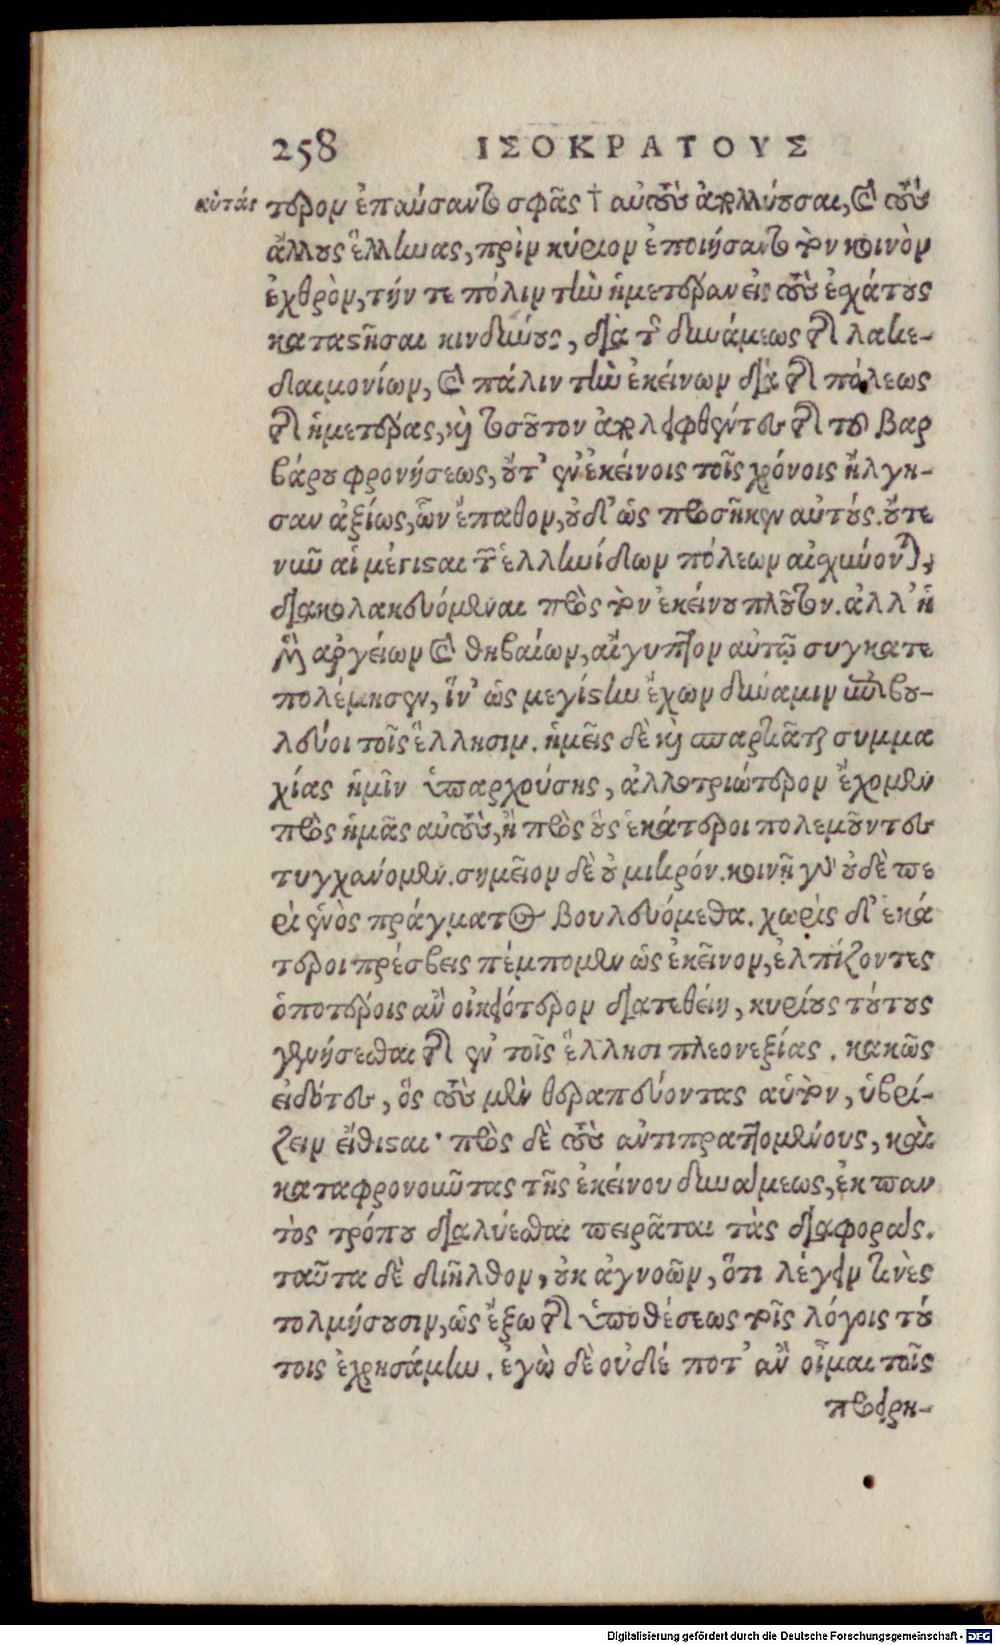 258 ΙΣΟΚΡΑΤΟΥΣ
αὐτάς
τερον ἐπαύσαντο σφᾶς † αὐτοὺς ἀπολλύουσαι, καὶ τοὺς
ἄλλους ἕλληνας, πρὶν κύριον ἐποιήσαντο τὸν κοινὸν
ἐχθρὸν, τήν τε πόλιν τὴν ἡμετέραν εἰς τοὺς ἐχάτους
καταστῆσαι κινδύνους, διὰ τῆς δυνάμεως τῆς λακε-
δαιμονίων, καὶ πάλιν τὴν ἐκείνων διὰ τῆς πόλεως
τῆς ἡμετέρας, καὶ τοσοῦτον ἀπολειφθέντες τῆς τοῦ βαρ
βάρου φρονήσεως, οὔτ' ἐν ἐκείνοις τοῖς χρόνοις ἤλγη-
σαν ἀξίως, ὧν ἔπαθον, οὐδ' ὡς προσῆκεν αὐτούς. οὔτε
νῦν αἱ μέγισται τῶν ἑλληνίδων πόλεων αἰσχύνονται,
διακολακευόμεναι πρὸς τὸν ἐκείνου πλοῦτον. ἀλλ' ἡ
μὲν ἀργείων καὶ θηβαίων, αἴγυπτον αὐτῷ συγκατε
πολέμησεν, ἵν' ὡς μεγίστην ἔχων δύναμιν ἐπιβου-
λεύοι τοῖς ἕλλησιν. ἡμεῖς δὲ καὶ σπαρτιᾶται συμμα
χίας ἡμῖν ὑπαρχούσης, ἀλλοτριώτερον ἔχομεν
πρὸς ἡμᾶς αὐτοὺς, ἢ πρὸς οὓς ἑκάτεροι πολεμοῦντες
τυγχάνομεν. σημεῖον δὲ οὐ μικρόν. κοινῇ γὰρ οὐδὲ πε
ρὶ ἑνὸς πράγματος βουλευόμεθα. χωρὶς δ' ἑκά
τεροι πρέσβεις πέμπομεν ὡς ἐκεῖνον, ἐλπίζοντες
ὁποτέροις ἂν οἰκειότερον διατεθείη, κυρίους τούτους
γενήσεσθαι τῆς ἐν τοῖς ἕλλησι πλεονεξίας. κακῶς
εἰδότες, ὃς τοὺς μὲν θεραπεύοντας αὑτὸν, ὑβρί-
ζειν εἴθισται· πρὸς δὲ τοὺς ἀντιπραττομένους, καὶ
καταφρονοῦντας τῆς ἐκείνου δυνάμεως, ἐκ παν
τὸς τρόπου διαλύεσθαι πειρᾶται τὰς διαφοράς.
ταῦτα δὲ διῆλθον, οὐκ ἀγνοῶν, ὅτι λέγειν τινὲς
τολμήσουσιν, ὡς ἔξω τῆς ὑποθέσεως τοῖς λόγοις τού
τοις ἐχρησάμην. ἐγὼ δὲ οὐδέ ποτ' ἂν οἶμαι τοῖς
προειρη-
Digitalisierung gefördert durch die Deutsche Forschungsgemeinschaft - DFG